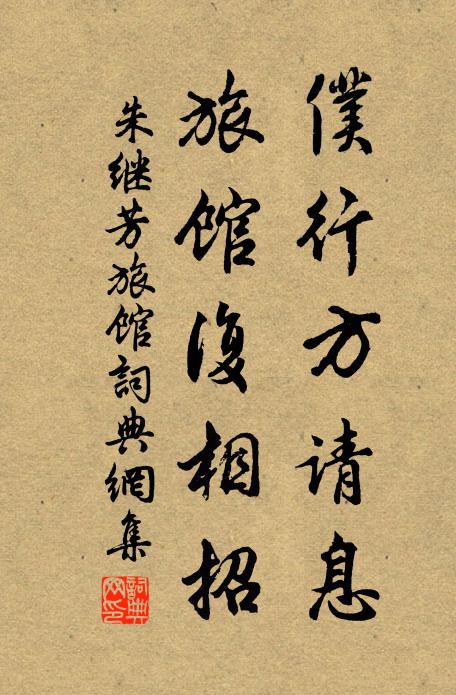 僕行方请息
旅馆復相招
朱继芳旅馆詞典網集
詞典网印